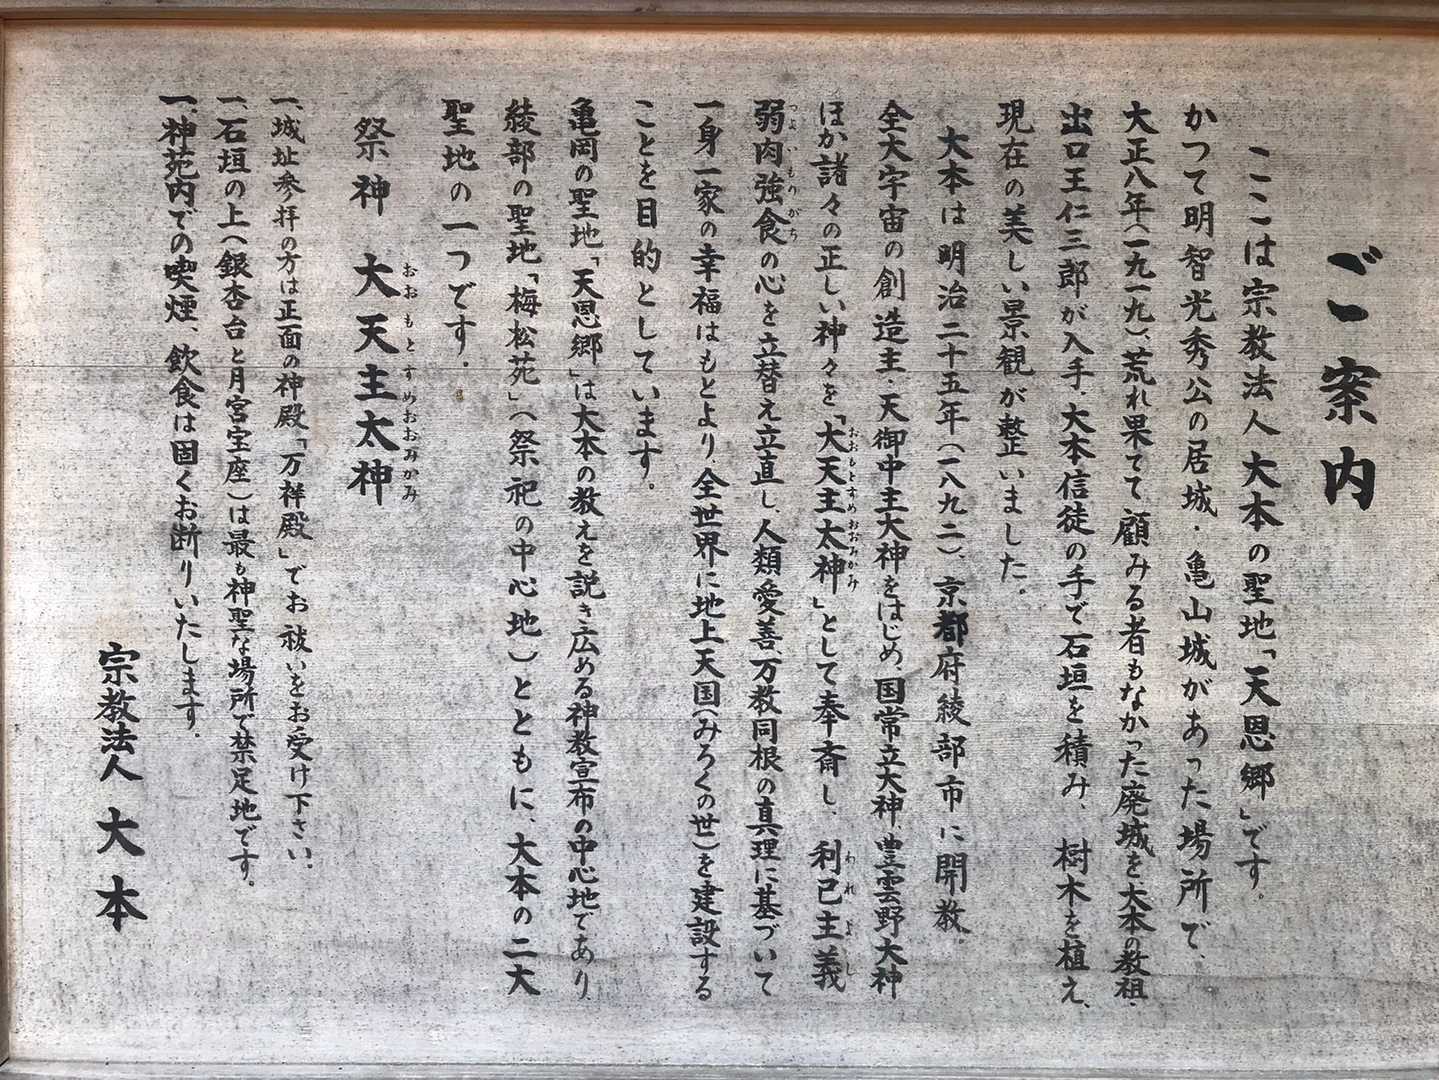 ご案内
ここは宗教法人大本の聖地「天恩郷」です。
かつて明智光秀公の居城・亀山城があった場所で、
大正八年(一九一九)、荒れ果てて顧みる者もなかった廃城を大本の教祖・
出口王仁三郎が入手・大本信徒の手で石垣を積み、樹木を植え、
現在の美しい景観が整いました。
大本は明治二十五年(一八九二)、京都府綾部市に開教。
全大宇宙の創造主・天御中主大神をはじめ、国常立大神、豊雲野大神
ほか諸々の正しい神々を「大天主太神」として奉斎し、利己主義
おおもとすめおおみかみ
われよし
弱肉強食の心を立替え立直し、人類愛善、万教同根の真理に基づいて
つよいものがち
一身一家の幸福はもとより、全世界に地上天国(みろくの世)を建設する
ことを目的としています。
亀岡の聖地「天恩郷」は大本の教えを説き広める神教宣布の中心地であり、
綾部の聖地「梅松苑」(祭祀の中心地)とともに、大本の二大
聖地の一つです。
祭神 大天主太神
おおもとすめおおみかみ
一、城址参拝の方は正面の神殿「万祥殿」でお祓いをお受け下さい。
一、石垣の上(銀杏台と月宮宝座)は最も神聖な場所で禁足地です。
一、神苑内での喫煙、飲食は固くお断りいたします。
宗教法人 大本